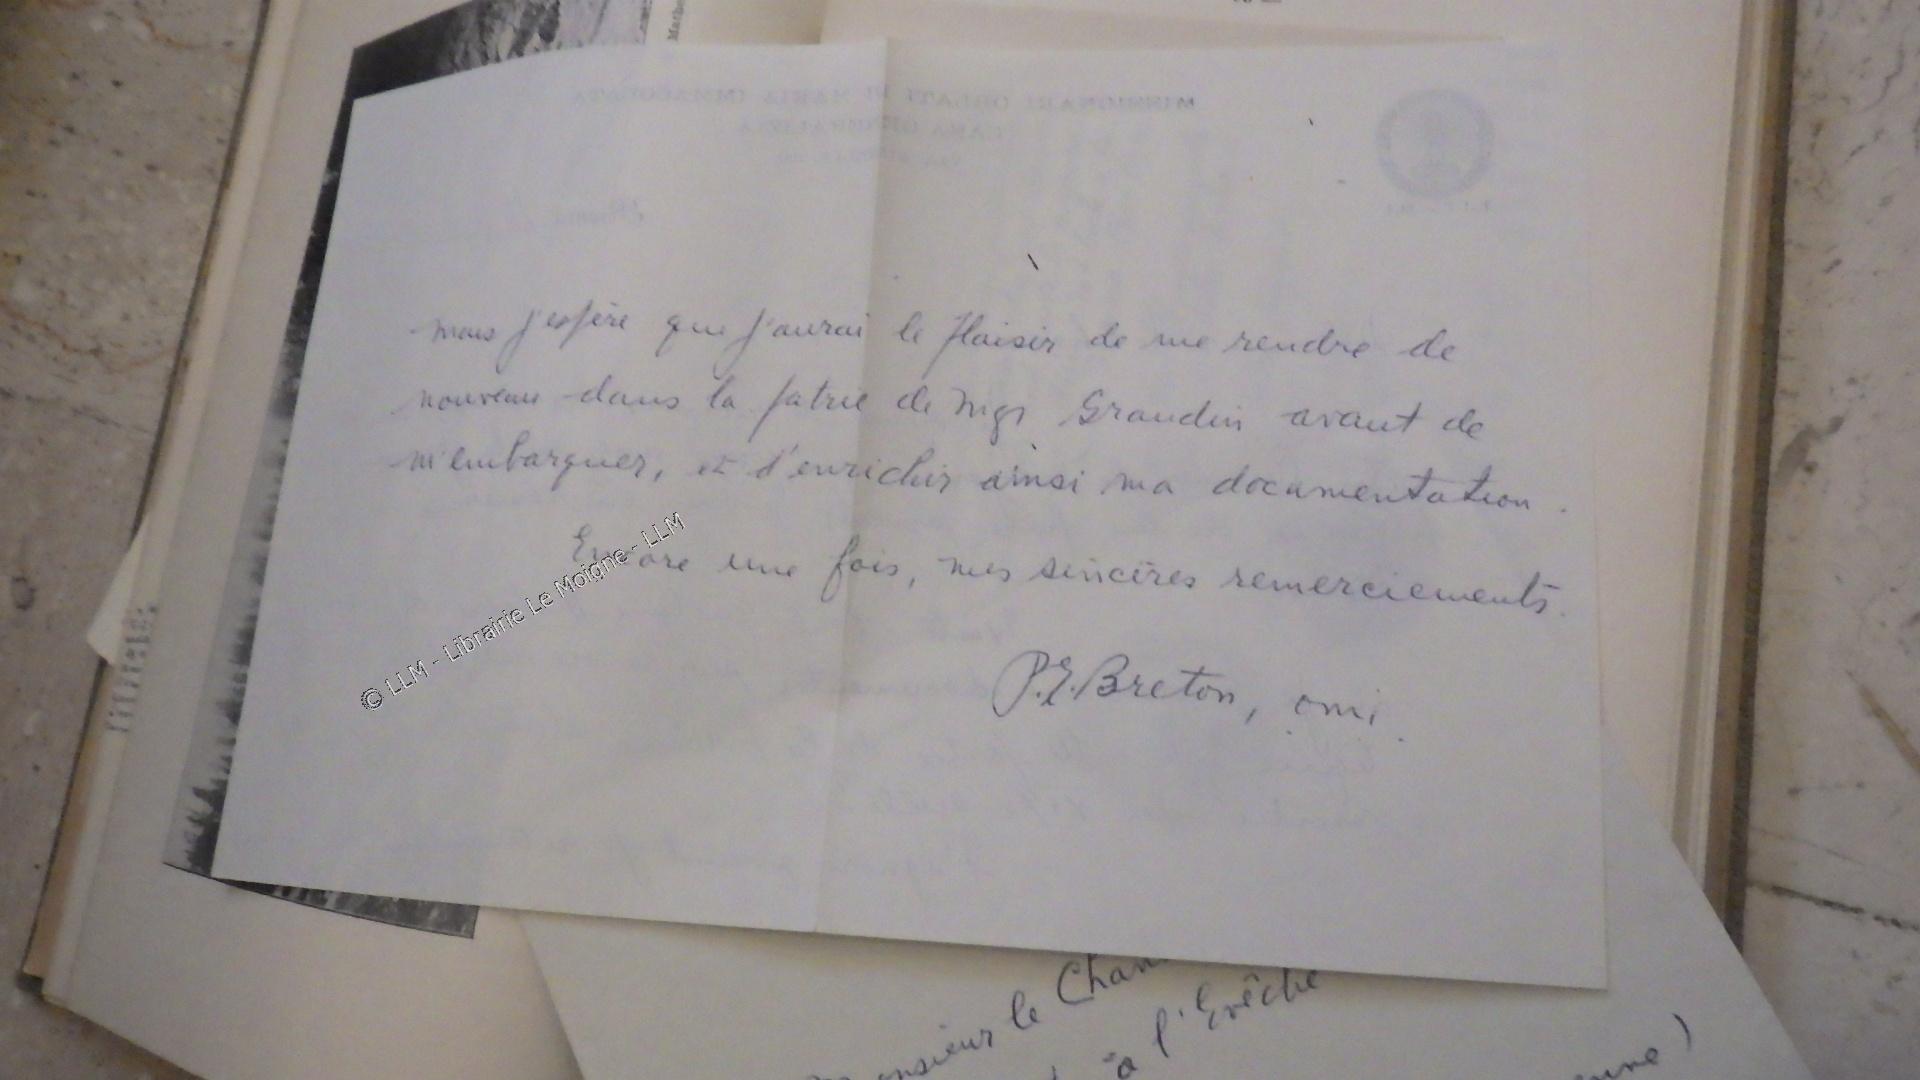 Mathe
mais j'espère que j'aurai le plaisir de me rendre de
nouveau dans la patrie de Mgr Grandin avant de
m'embarquer, et d'enrichir ainsi ma documentation.
Encore une fois, mes sincères remerciements.
P.E. Breton, omi.
© LLM - Librairie Le Moigne - LLM
Monsieur le Chan
à l'Evêché